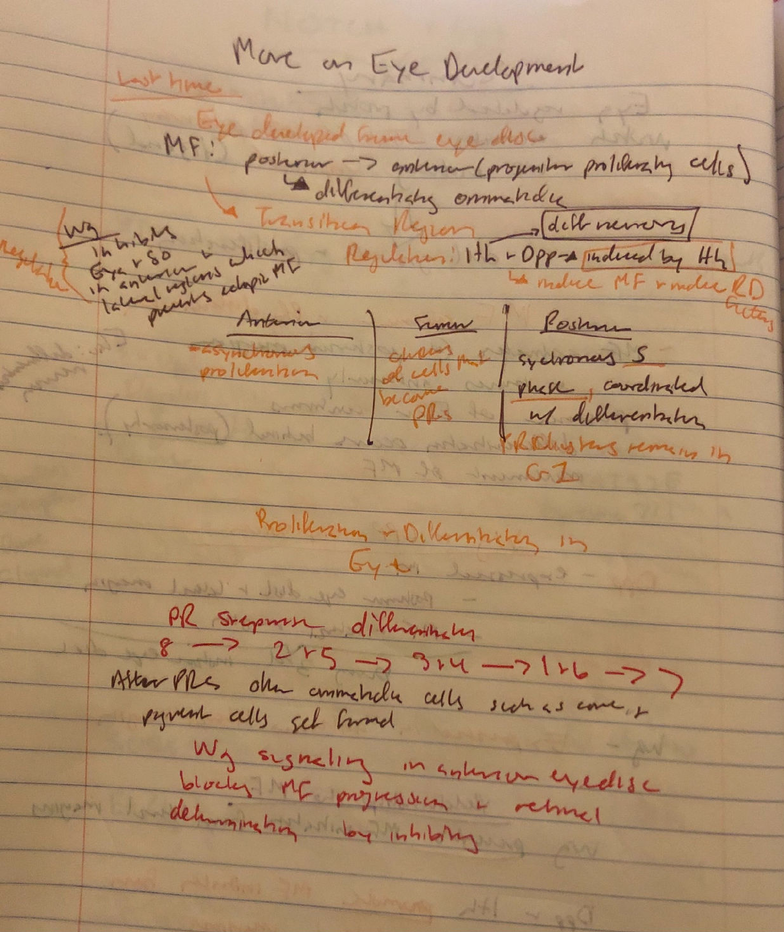 More on Eye Development
Last time
Eye developed from eye disc
MF: posterior → anterior (progenitor proliferating cells)
↳ differentiating ommatidia
Transition Region
diff neurons
Regulation: Hh + Dpp → induced by Hh
↳ induce MF + induce RD
factors
Regulation
Wg
inhibits
Eya + So
in anterior +
lateral regions which
prevents ectopic MF
Anterior
asynchronous
proliferation
Furrow
of cells that
become
PRs
Posterior
sychronous S
phase, coordinated
w/ differentiation
clusters remain in
G1
Proliferation + Differentiation in
Eye
PR differentiates
8 → 2+5 → 3+4 → 1+6 → 7
After PRs other ommatidia cells such as cone, +
pigment cells get formed
Wg signaling in anterior eye disc
blocks MF progression + retinal
determination by inhibiting